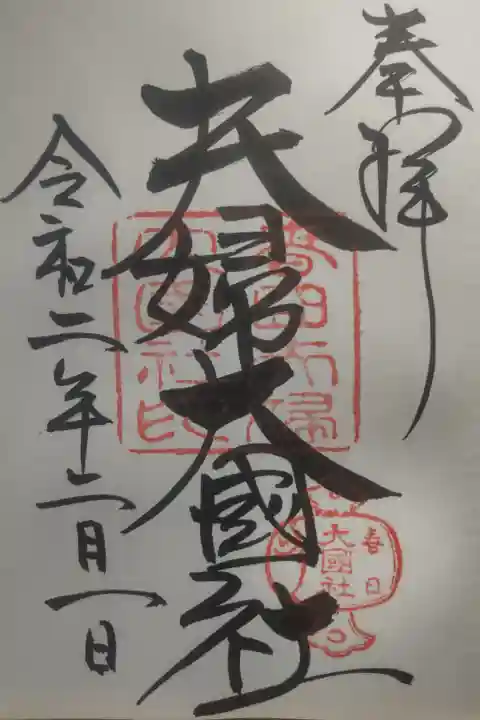 奉拝
夫婦大國社
令和二年二月一日
春日夫婦
大國社印
春日
大國社